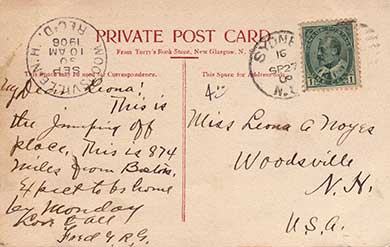 PRIVATE POST CARD
From Terry's Book Store, New Glasgow, N. S.
WOODSVILLE, N.H.
SEP
30
10 AM
1906
REC'D.
This Space may be used for Correspondence.
This Space for Address only.
SYDNEY
16
SP 27
06
N.S.
1
1
My Dear Leona!
This is
the jumping off
place. This is 874
miles from Boston.
Expect to be home
by Monday
Love to all
Fred & R.G.
Miss Leona A Noyes
Woodsville
N.H.
U.S.A.